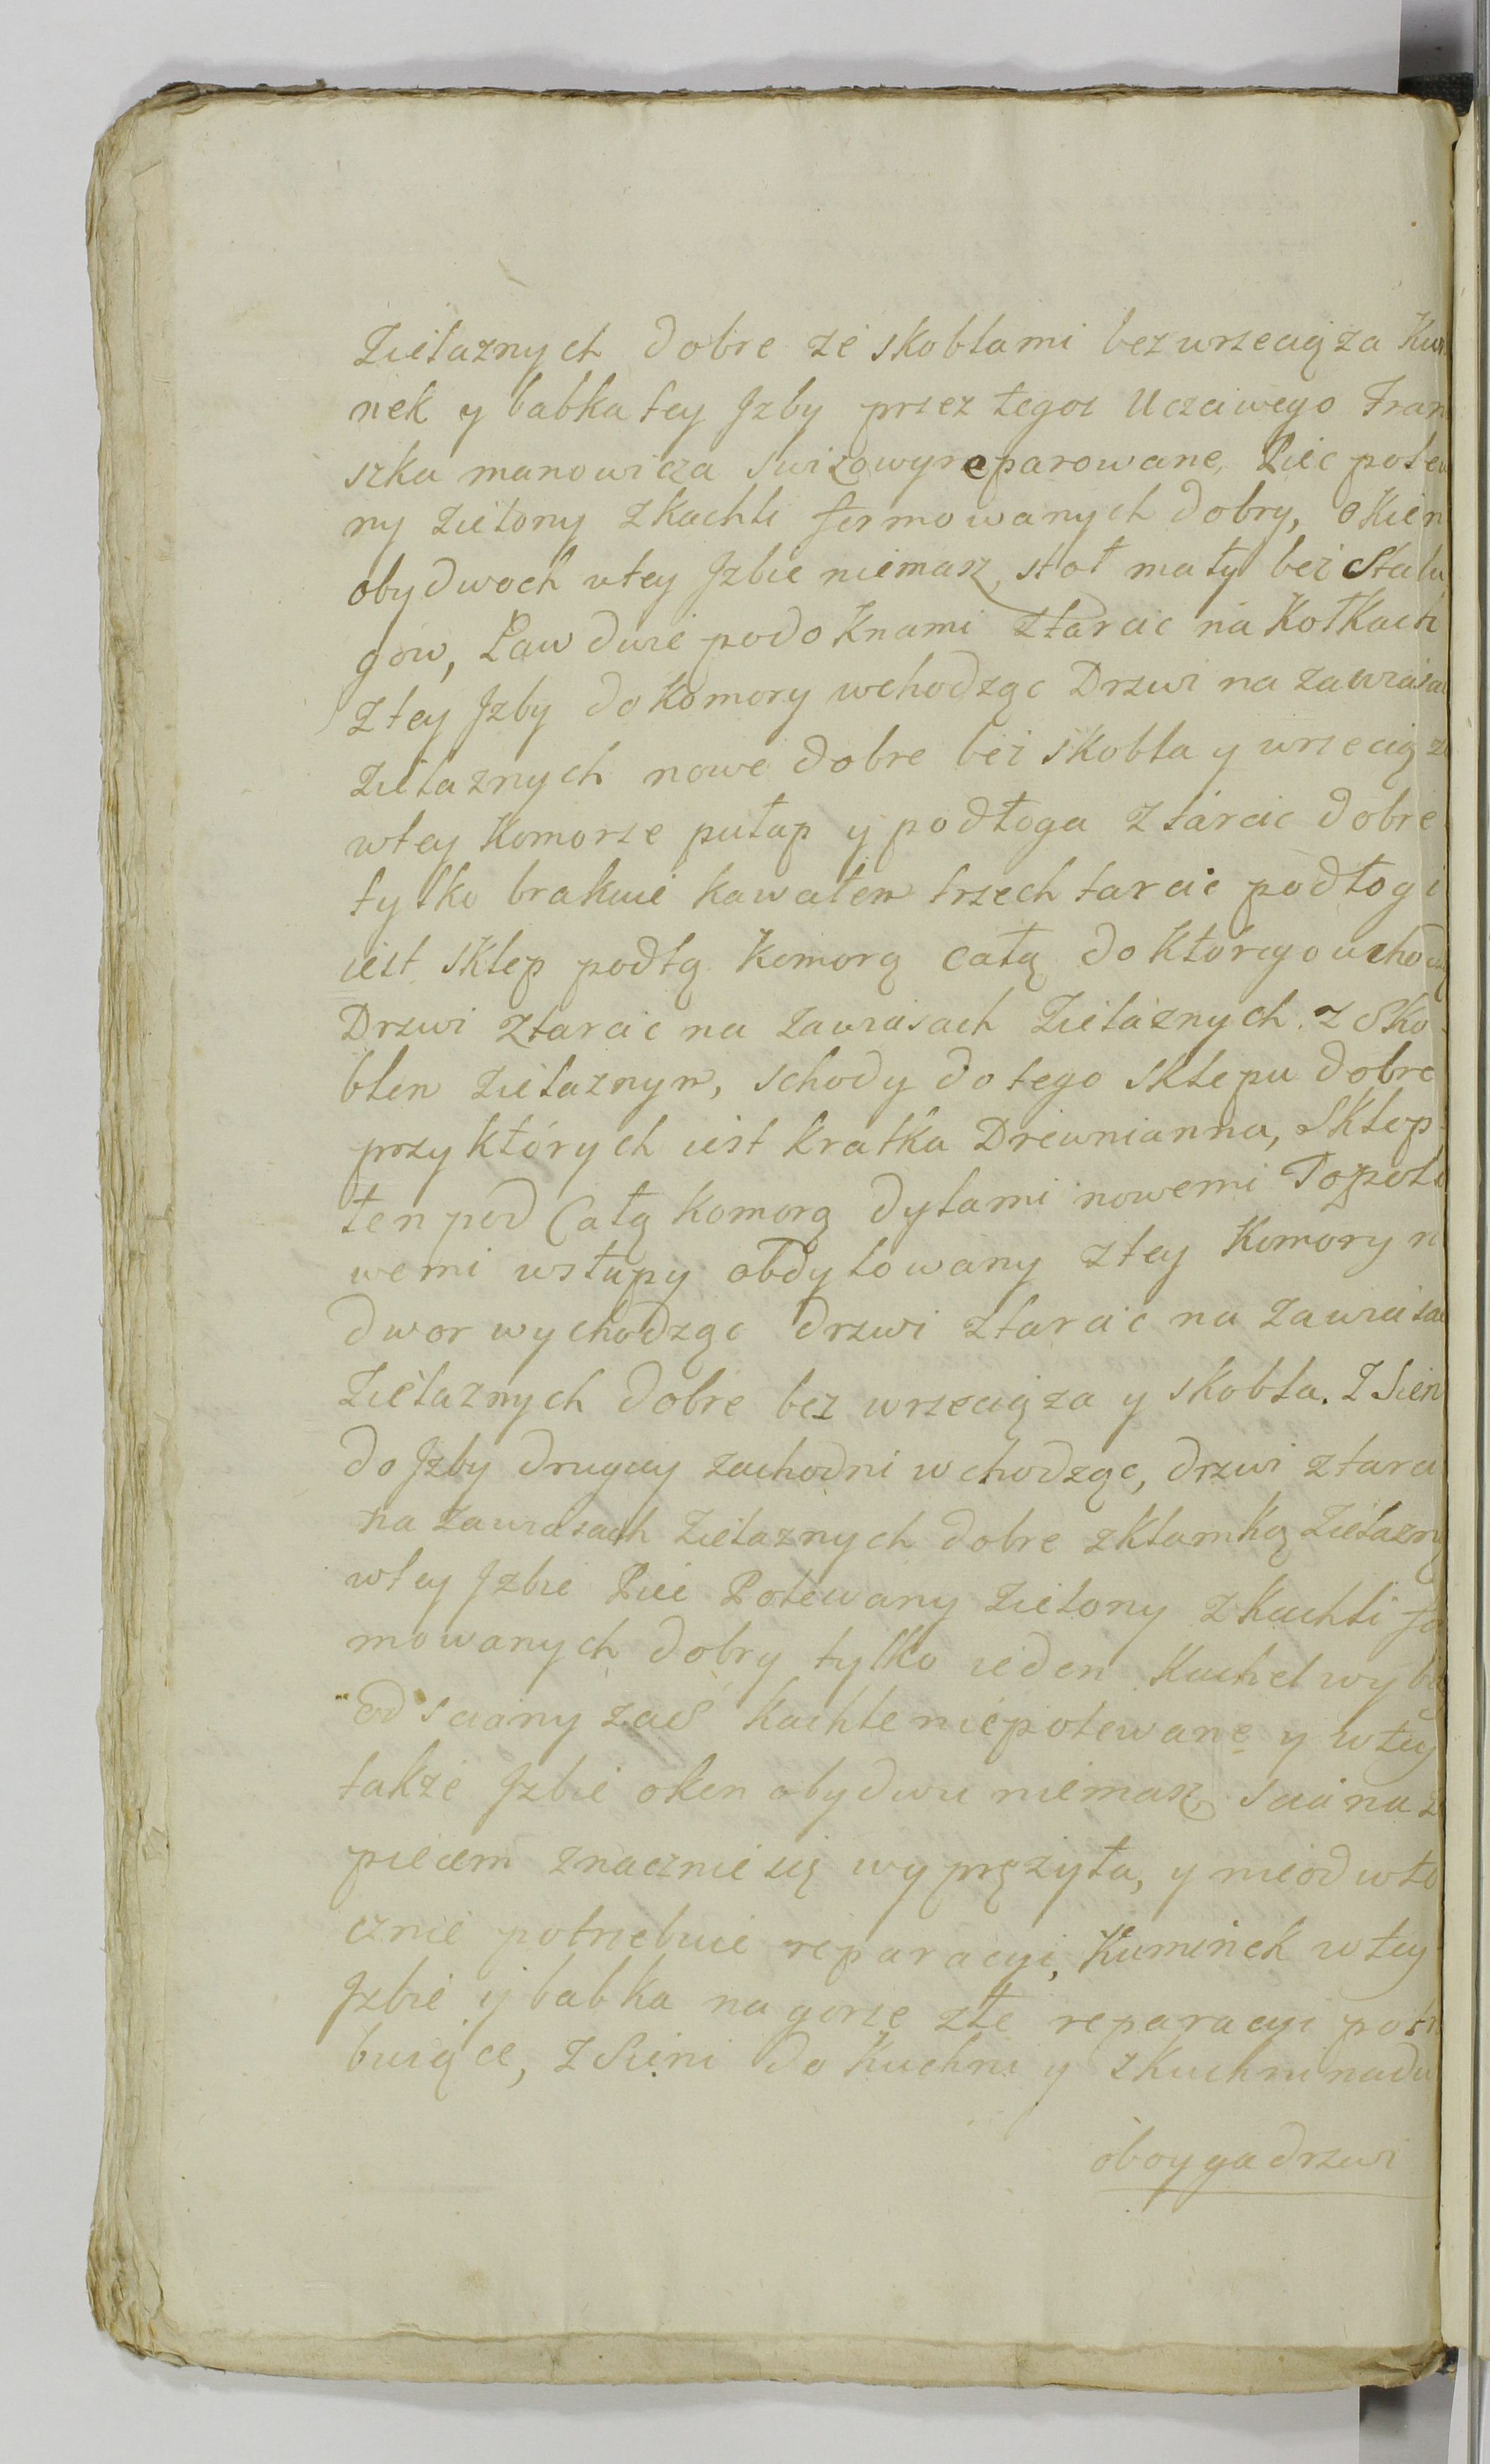 Zielaznych dobre ze skoblami bez wrzeciąza Kur
nek y babka tey Jzby przez tegoz Uczciwego Fran
szka manowicza swizo wyreparowane, Piec pole
ny Zielony z kachli formowanych dobry, okien
obydwoch wtey Jzbie niemasz, stoł mały bez Stalu
gow, Ław dwie pod oknami ztarcic na Kołkach
z tey Jzby do Komory wchodząc Drzwi na zawiasa
Zielaznych nowe dobre bez skobla y wrzeciąz
wtey Komorze pułap y podłoga z tarcic dobre
tylko brakuie kawałem trzech tarcic podłogi
iest sklep podtą Komorą całą do którego wchodz
Drzwi ztarcic na zawiasach Zielaznych z Sko
blem Zielaznym, schody do tego sklepu dobre
przy których iest kratka Drewnianna, Sklep
ten pod Całą komorą dylami nowemi Topolo
wemi wstupy obdylowany z tey Komory n
dwor wychodząc drzwi ztarcic na zawiasa
Zielaznych dobre bez wrzeciąza y skobla. Z Sien
do Jzby drugiey zachodni wchodząc, drzwi z tarci
na zawiasach Zielaznych dobre z klamką Zielazną
wtey Jzbie Piec Polewany Zielony z Kachli fo
mowanych dobry tylko ieden Kachel wybi
od sciany zaś kachle niepolewane y wtey
takze Jzbie oken obydwu niemasz, sciana z
piecem znacznie się wyprężyła, y nieodwło
cznie potrzebuie reparacyi, Kuminek w tey
Jzbie y babka na gorze złe reparacyi potr
buiące, Z Sieni do Kuchni y z Kuchni nadw
oboyga drzwi